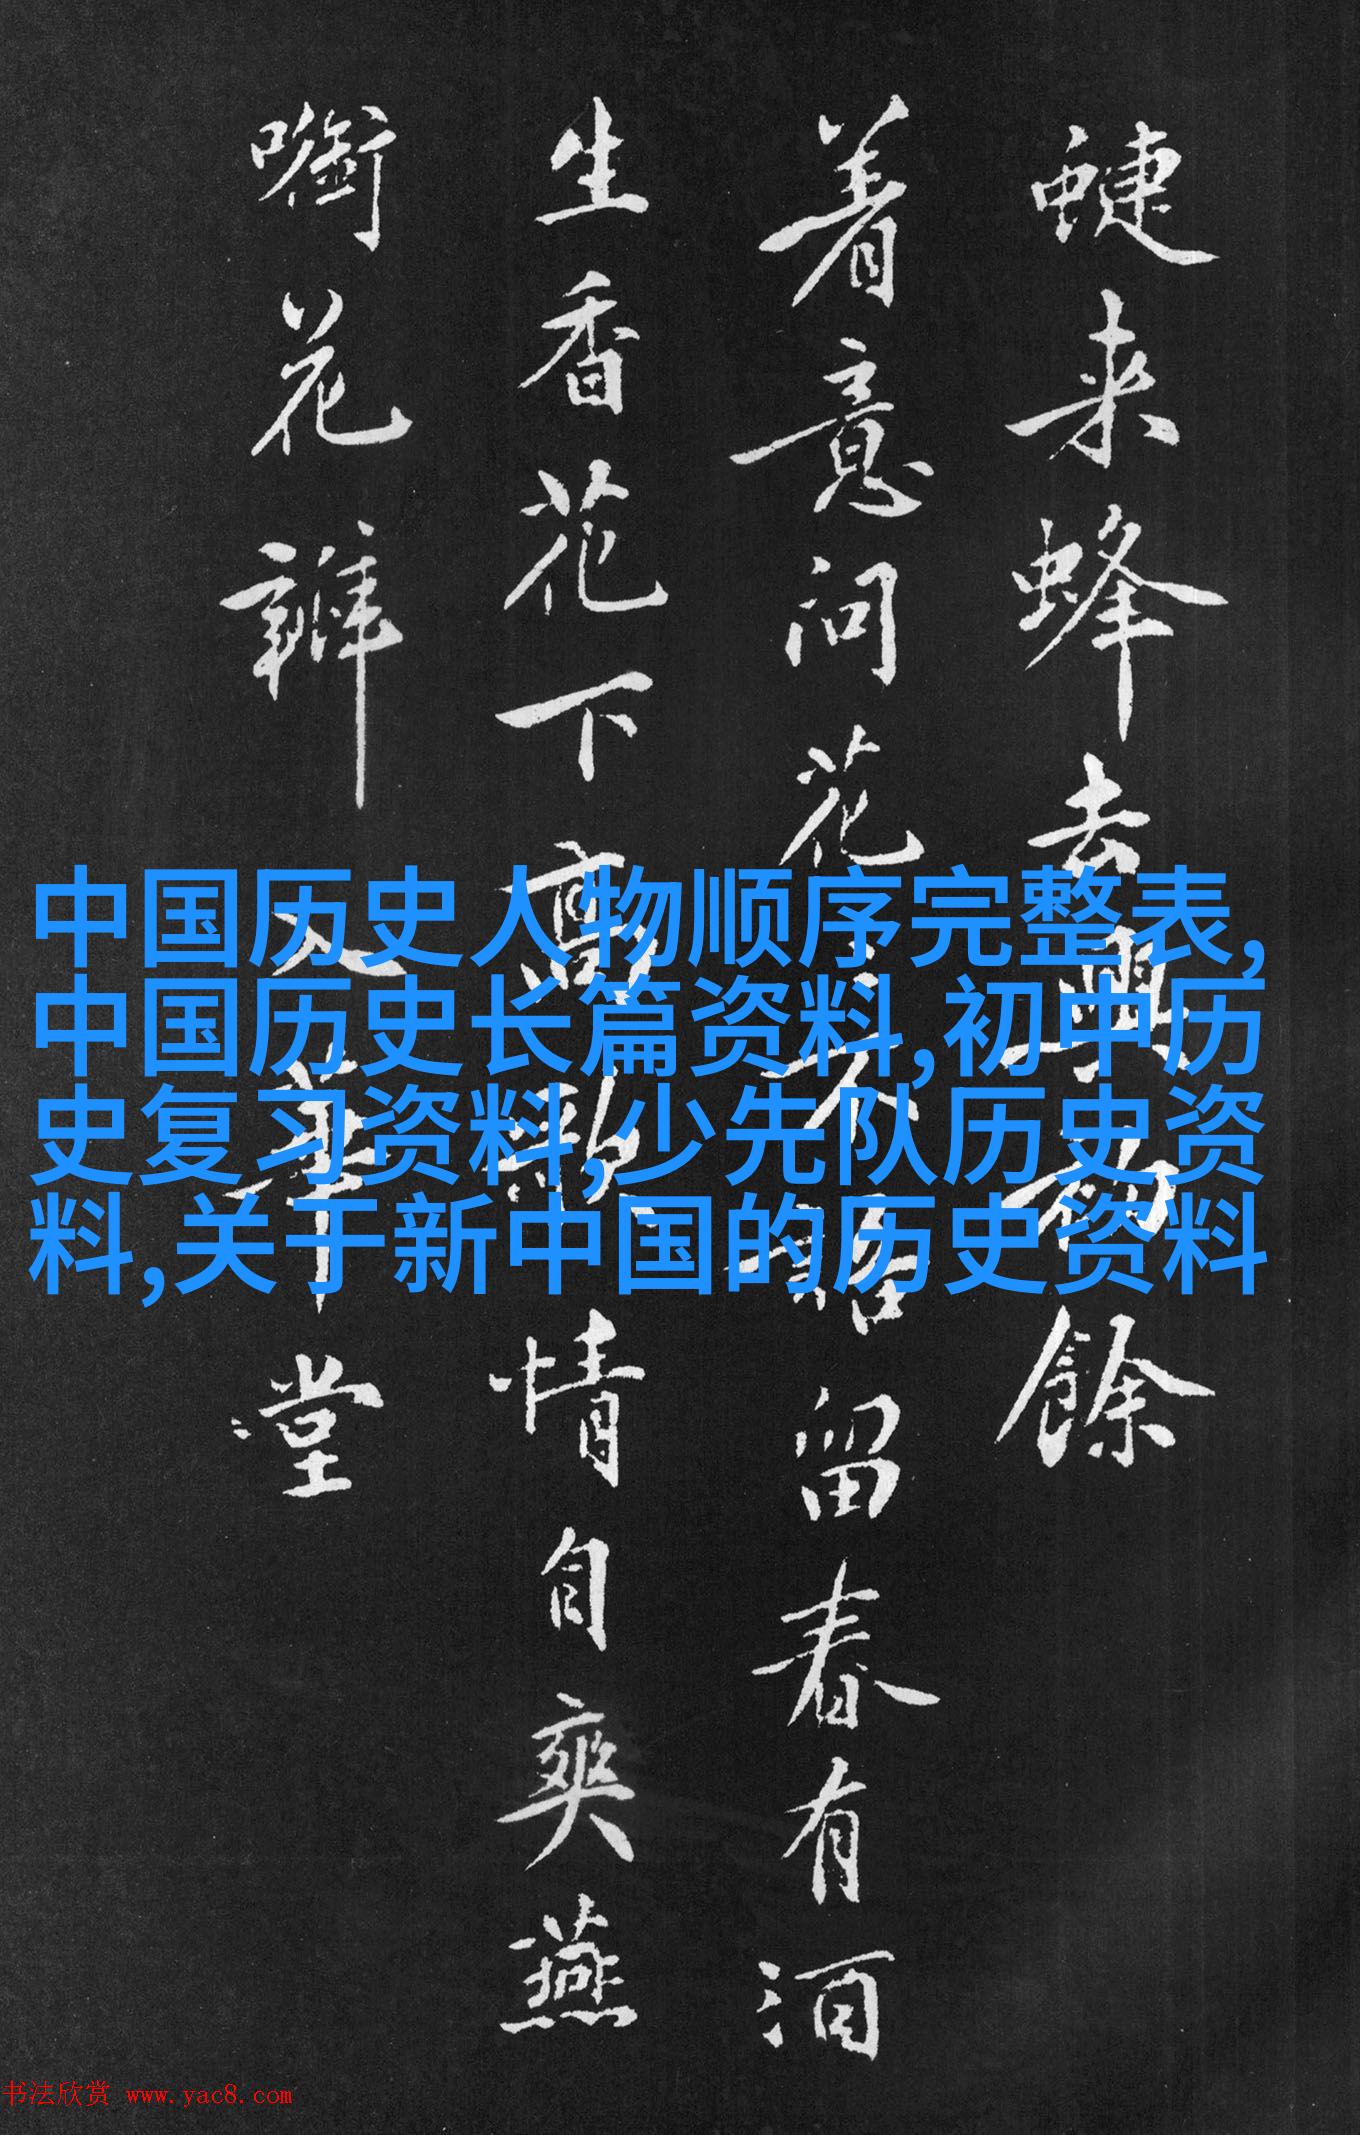 蜨来蜂去興餘
着意问花不語留春有酒
生香花下高歌情自爽燕
花瓣入華堂
中国历史人物顺序完整表,
中国历史长篇资料,初中历
史复习资料,少先队历史资
料,关于新中国的历史资料
书法欣赏 www.yac8.com